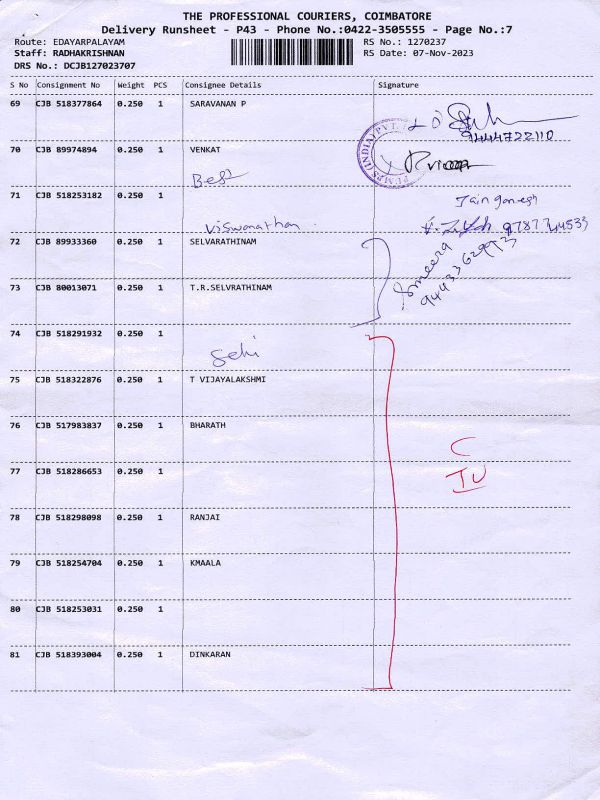 THE PROFESSIONAL COURIERS, COIMBATORE
Delivery Runsheet - P43 - Phone No.:0422-3505555 - Page No.:7
Route: EDAYARPALAYAM RS No.: 1270237
Staff: RADHAKRISHNAN RS Date: 07-Nov-2023
DRS No.: DCJB127023707
S No Consignment No Weight PCS Consignee Details Signature
69 CJB 518377864 0.250 1 SARAVANAN P
9444722110
70 CJB 89974894 0.250 1 VENKAT
Best
71 CJB 518253182 0.250 1 Jain ganesh
Viswanathan
72 CJB 89933360 0.250 1 SELVARATHINAM
Smeera
9443362992
73 CJB 80013071 0.250 1 T.R.SELVRATHINAM
74 CJB 518291932 0.250 1
Selvi
75 CJB 518322876 0.250 1 T VIJAYALAKSHMI
76 CJB 517983837 0.250 1 BHARATH
C
77 CJB 518286653 0.250 1 IU
78 CJB 518298098 0.250 1 RANJAI
79 CJB 518254704 0.250 1 KMAALA
80 CJB 518253031 0.250 1
81 CJB 518393004 0.250 1 DINKARAN